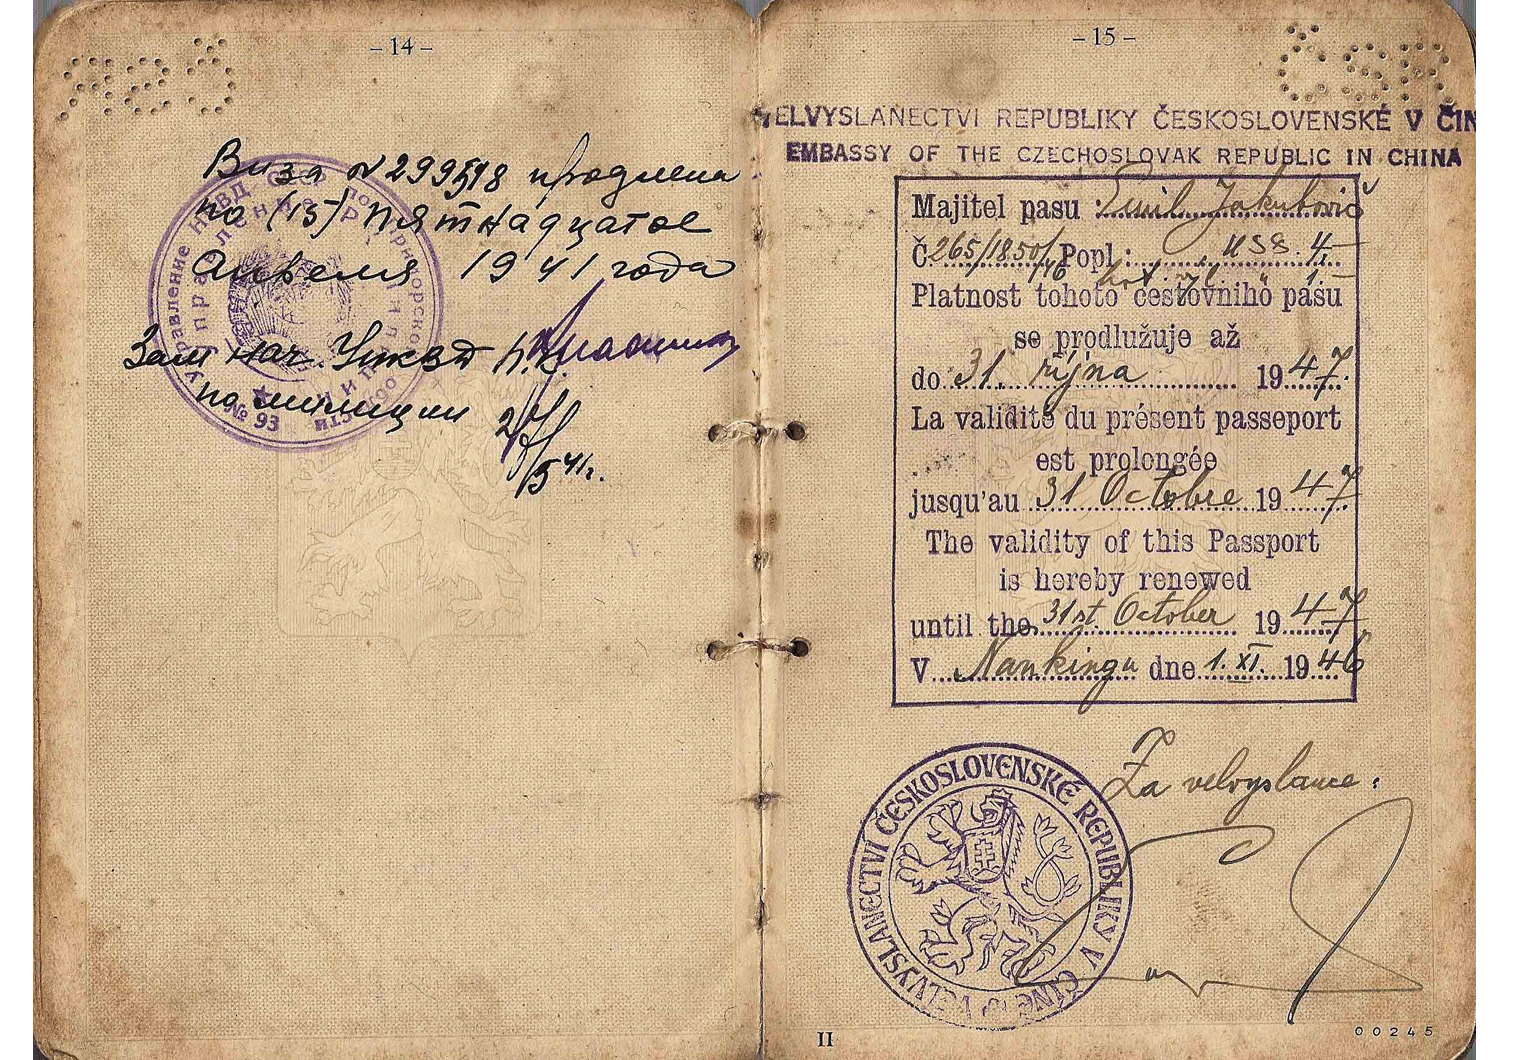 – 14 –
ČSR
Виза № 299518 продлена
по (15) пятнадцатое
Апреля 1941 года
Зам нач.
по милиции
5 41г.
Управление НКВД СССР по Приморскому
№ 93
– 15 –
ČSR
VELVYSLANECTVI REPUBLIKY ČESKOSLOVENSKÉ V ČIN
EMBASSY OF THE CZECHOSLOVAK REPUBLIC IN CHINA
Majitel pasu : Emil Jakubovič
Č. 265/1850/46 Popl : US$ 4.–
Platnost tohoto cestovního pasu
se prodlužuje až
do 31. října 1947.
La validité du présent passeport
est prolongée
jusqu'au 31 Octobre 1947
The validity of this Passport
is hereby renewed
until the 31st. October 1947
V Nankingu dne 1. XI. 1946
Za velvyslance :
VELVYSLANECTVÍ ČESKOSLOVENSKÉ REPUBLIKY V ČÍNĚ
II
00245